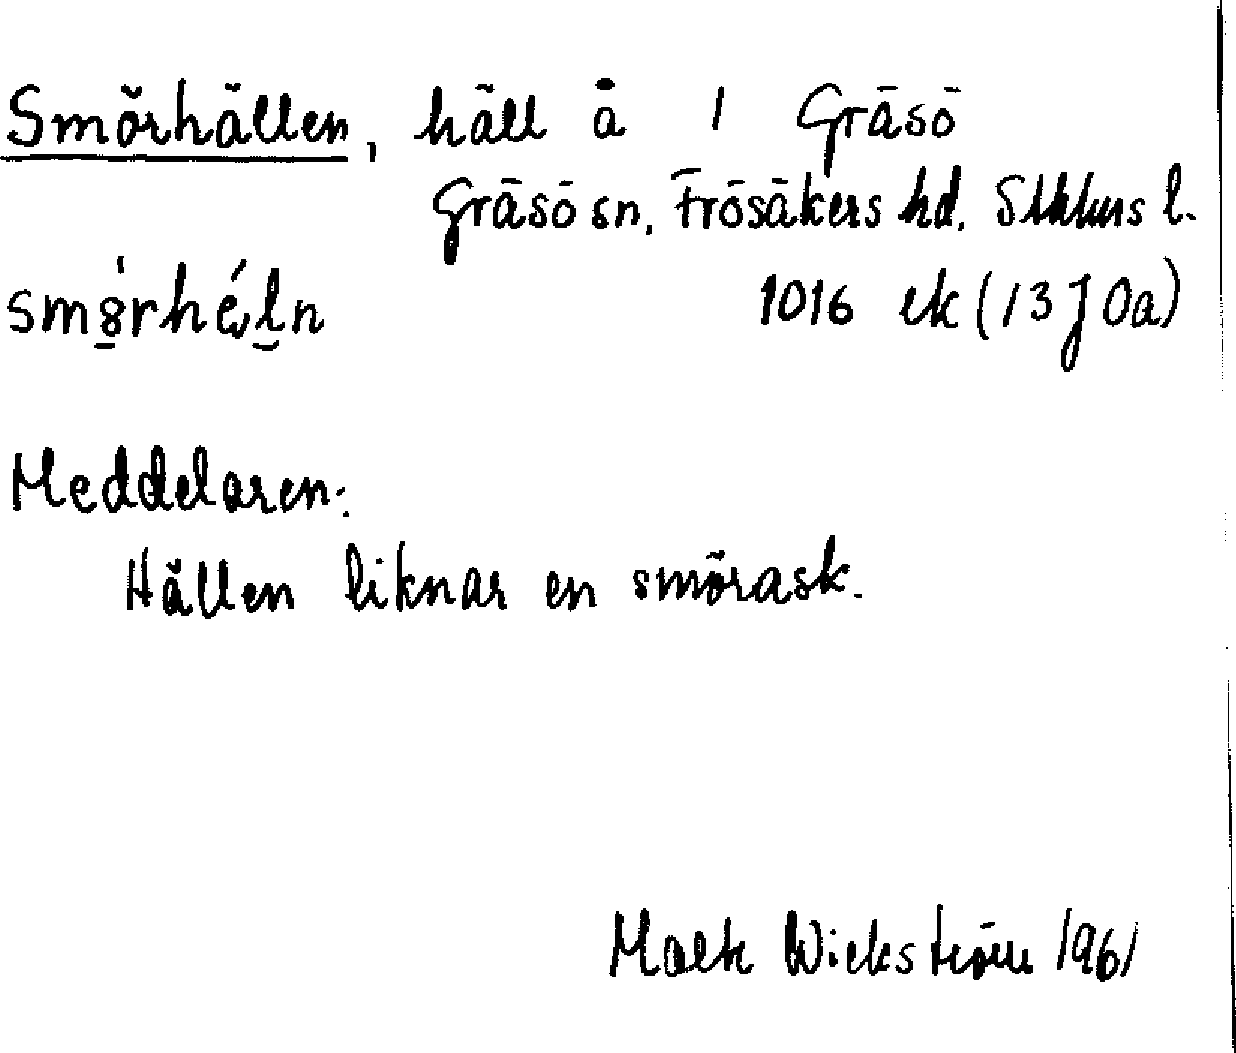 Smörhällen, häll å 1 Gräsö
Gräsö sn, Frösåkers hd, Sthlms l.
1016 ek (13 J 0a)
Meddelaren:
Hällen liknar en smörask.
Wickström 1961